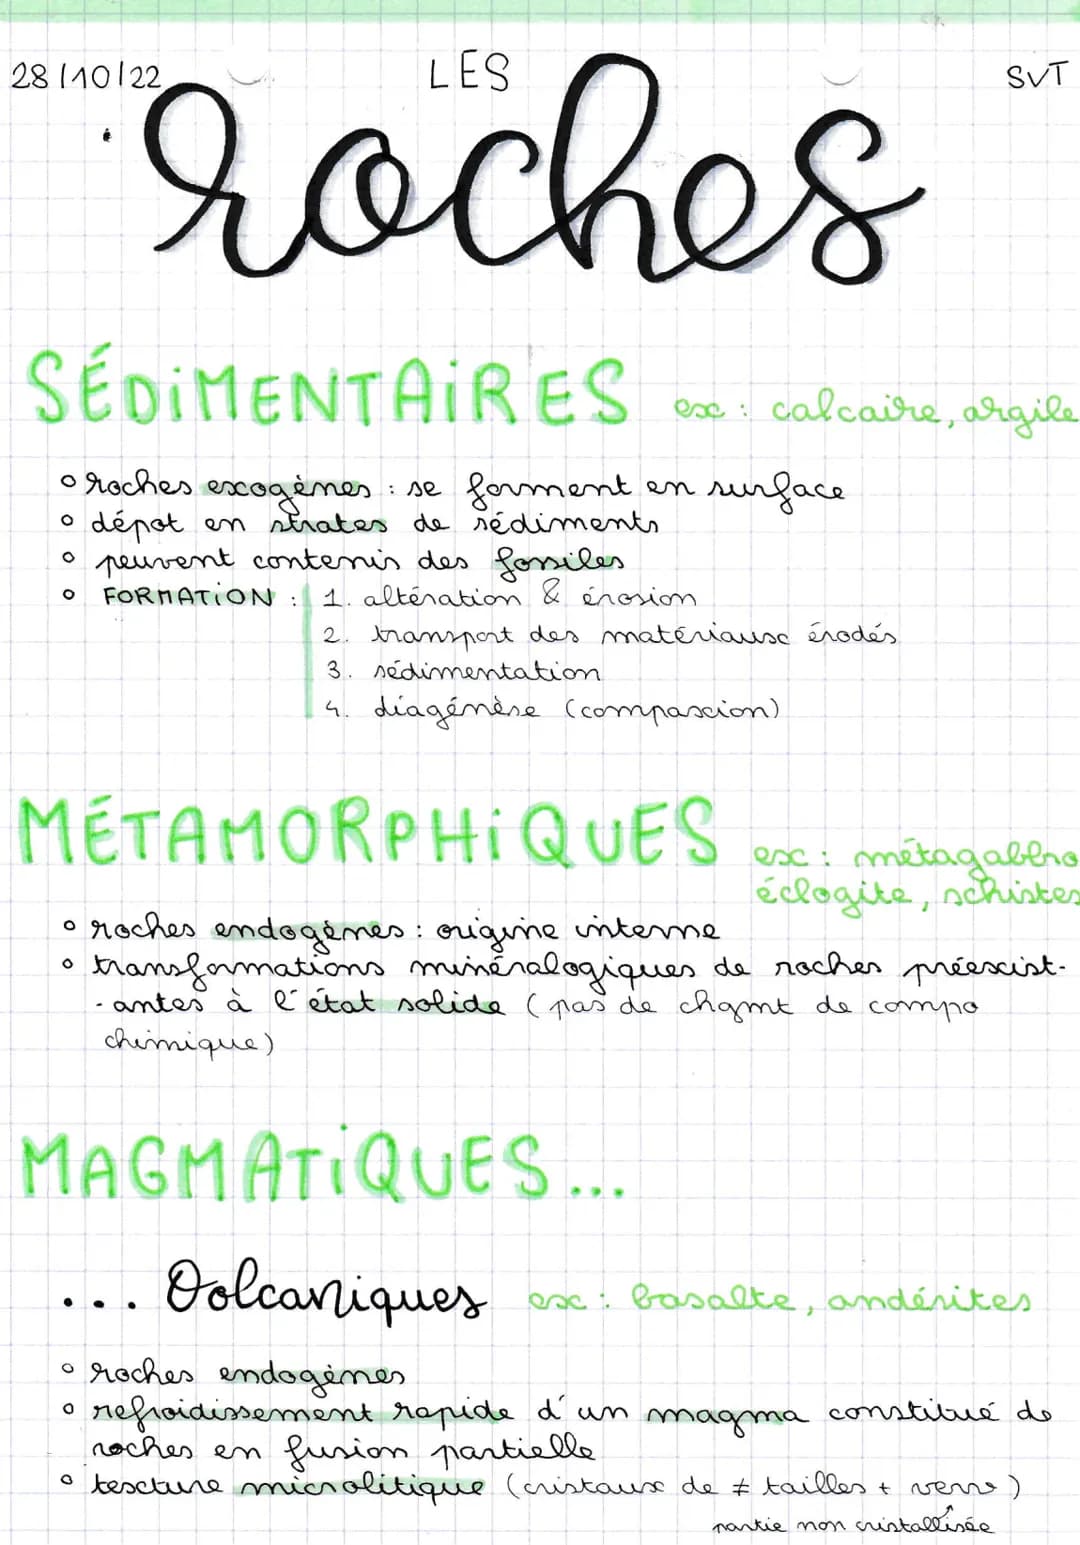 28/10/22 LES SVT
roches
SÉDIMENTAIRES ex : calcaire, argile
◦ roches exogènes : se forment en surface
◦ dépot en strates de sédiments
◦ peuvent contenir des fossiles
◦ FORMATION : 1. altération & érosion
2. transport des matériaux érodés
3. sédimentation
4. diagénèse (compaxion)
MÉTAMORPHIQUES ex : métagabbro
éclogite, schistes
◦ roches endogènes : origine interne
◦ transformations minéralogiques de roches préexist-
-antes à l'état solide (pas de chgmt de compo
chimique)
MAGMATIQUES...
... Volcaniques ex : basalte, andésites
◦ roches endogènes
◦ refroidissement rapide d'un magma constitué de
roches en fusion partielle
◦ texture microlitique (cristaux de ≠ tailles + verre)
partie non cristallisée